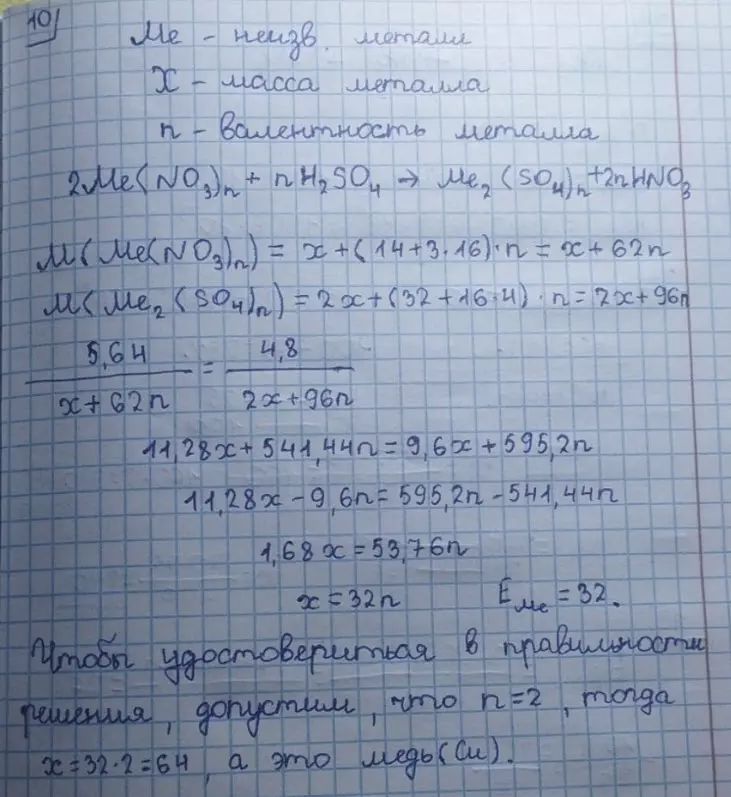 10)
Me - неизв. металл
X - масса металла
n - валентность металла
2Me(NO₃)ₙ + nH₂SO₄ → Me₂(SO₄)ₙ + 2nHNO₃
M(Me(NO₃)ₙ) = x + (14+3·16)·n = x + 62n
M(Me₂(SO₄)ₙ) = 2x + (32+16·4)·n = 2x + 96n
5,64 / (x + 62n) = 4,8 / (2x + 96n)
11,28x + 541,44n = 9,6x + 595,2n
11,28x - 9,6n = 595,2n - 541,44n
1,68x = 53,76n
x = 32n Eₘₑ = 32.
Чтобы удостовериться в правильности
решения, допустим, что n=2, тогда
x = 32·2 = 64, а это медь (Cu).